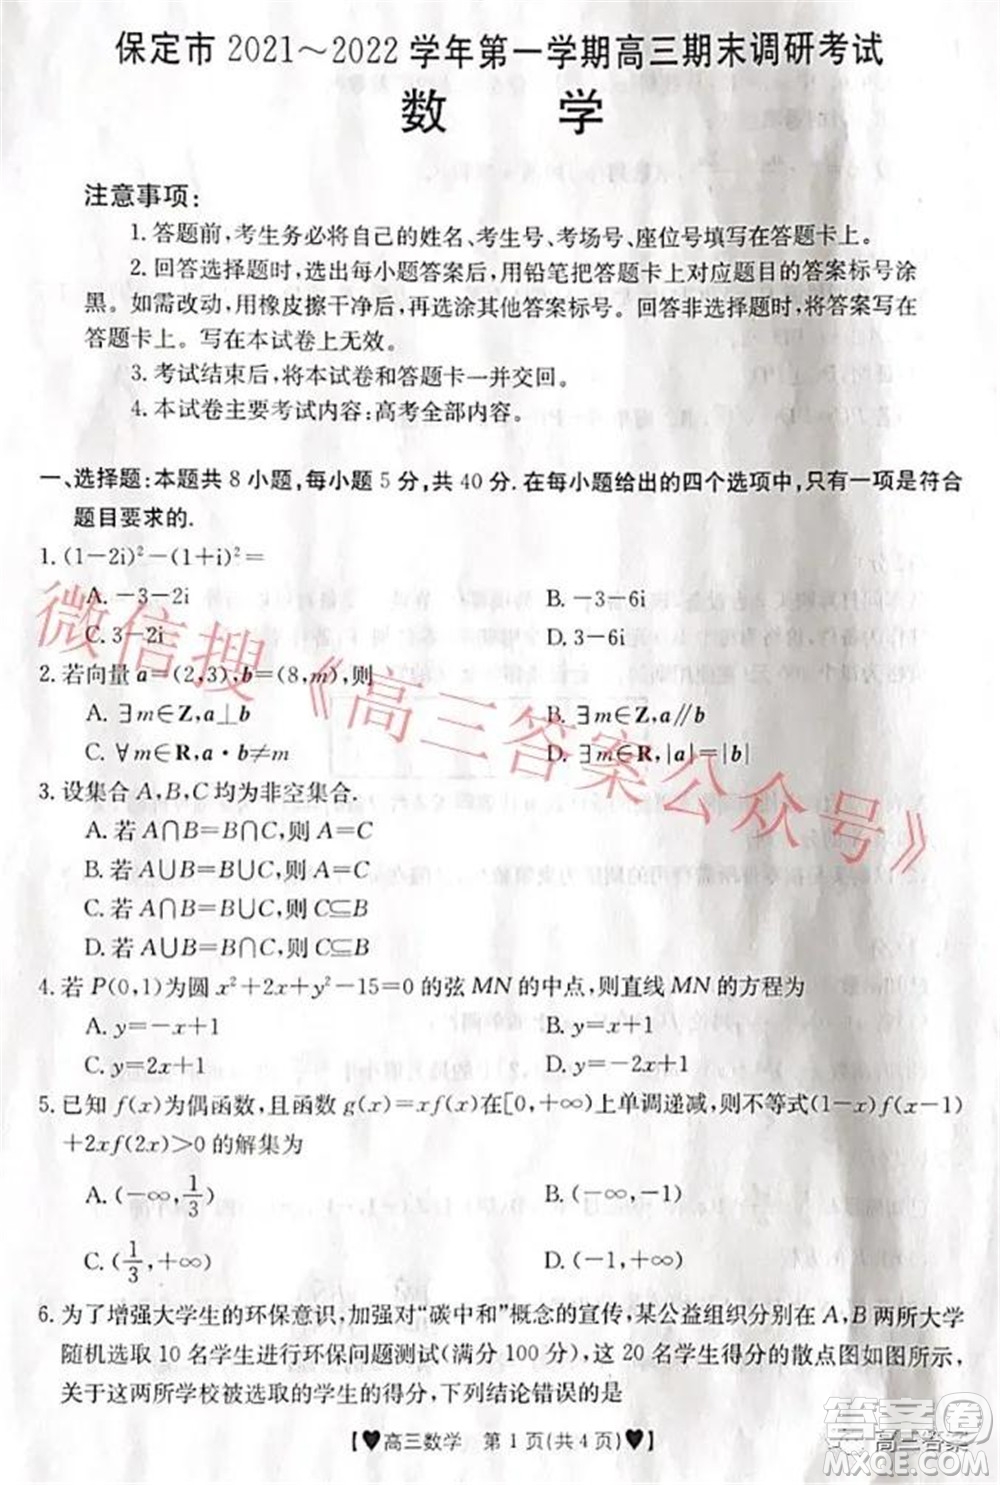 保定市 2021～2022 学年第一学期高三期末调研考试
数 学
注意事项：
1. 答题前，考生务必将自己的姓名、考生号、考场号、座位号填写在答题卡上。
2. 回答选择题时，选出每小题答案后，用铅笔把答题卡上对应题目的答案标号涂
黑。如需改动，用橡皮擦干净后，再选涂其他答案标号。回答非选择题时，将答案写在
答题卡上。写在本试卷上无效。
3. 考试结束后，将本试卷和答题卡一并交回。
4. 本试卷主要考试内容：高考全部内容。
一、选择题：本题共 8 小题，每小题 5 分，共 40 分. 在每小题给出的四个选项中，只有一项是符合
题目要求的.
1. (1－2i)²－(1＋i)²＝
A. －3－2i B. －3－6i
C. 3－2i D. 3－6i
2. 若向量 a＝(2,3)，b＝(8,m)，则
A. ∃m∈Z，a⊥b B. ∃m∈Z，a∥b
C. ∀m∈R，a·b≠m D. ∃m∈R，|a|＝|b|
3. 设集合 A，B，C 均为非空集合.
A. 若 A∩B＝B∩C，则 A＝C
B. 若 A∪B＝B∪C，则 A＝C
C. 若 A∩B＝B∪C，则 C⊆B
D. 若 A∪B＝B∩C，则 C⊆B
4. 若 P(0,1)为圆 x²＋2x＋y²－15＝0 的弦 MN 的中点，则直线 MN 的方程为
A. y＝－x＋1 B. y＝x＋1
C. y＝2x＋1 D. y＝－2x＋1
5. 已知 f(x)为偶函数，且函数 g(x)＝xf(x)在[0,＋∞)上单调递减，则不等式(1－x)f(x－1)
＋2xf(2x)＞0 的解集为
A. (－∞, 1/3) B. (－∞,－1)
C. (1/3,＋∞) D. (－1,＋∞)
6. 为了增强大学生的环保意识，加强对“碳中和”概念的宣传，某公益组织分别在 A，B 两所大学
随机选取 10 名学生进行环保问题测试(满分 100 分)，这 20 名学生得分的散点图如图所示，
关于这两所学校被选取的学生的得分，下列结论错误的是
【♥高三数学 第 1 页(共 4 页)♥】
微信搜《高三答案公众号》
答案圈
高三答案
MXQE.COM